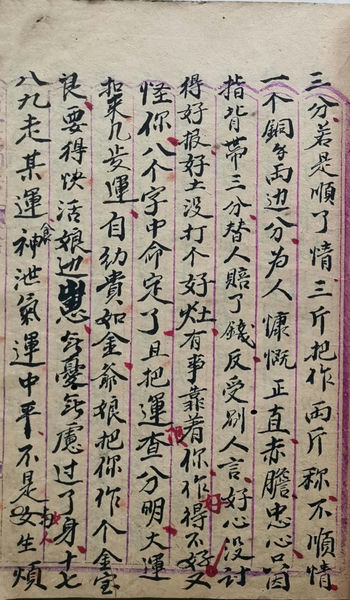 三分若是順了情三斤把作兩斤称不順情
一个銅分両边分为人慷慨正直赤膽忠心只因
指背帶三分替人賠了錢反受别人言好心没討
得好报好土没打个好灶有事靠着你作得不好又
怪你八个字中命定了且把運查分明大運
扣來几步運自幼贵如金爺娘把你作个金宝
良要得快活娘边無憂無慮过了身十七
八九走某運食神泄氣運中平不是女生煩